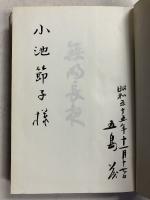 小池節子様
無明長夜
昭和五十五年十一月十七日
五島茂